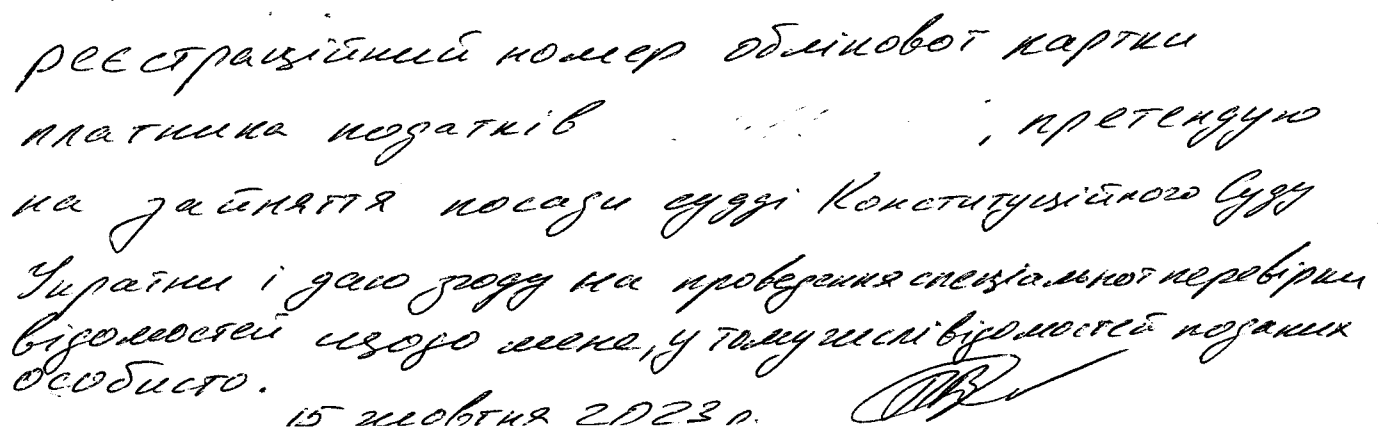 реєстраційний номер облікової картки
платника податків , претендую
на зайняття посади судді Конституційного Суду
України і даю згоду на проведення спеціальної перевірки
відомостей щодо мене, у тому числі відомостей поданих
особисто.
15 жовтня 2023 р.